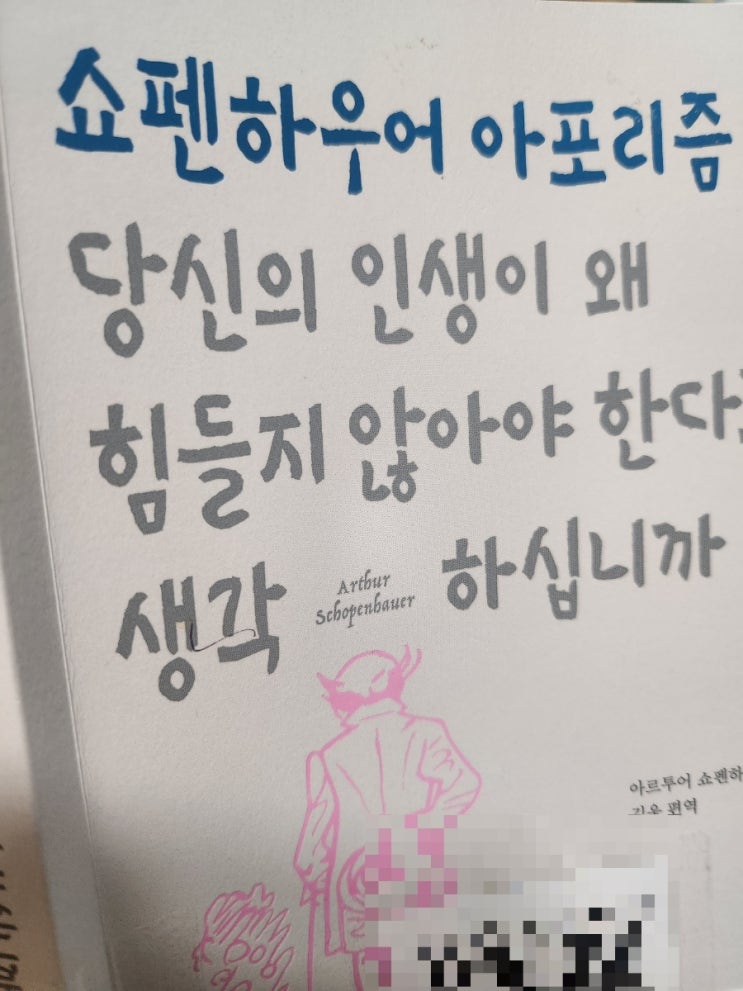 쇼펜하우어 아포리즘
당신의 인생이 왜
힘들지 않아야 한다
생각
Arthur
Schopenhauer
하십니까
아르투어 쇼펜하
김욱 편역